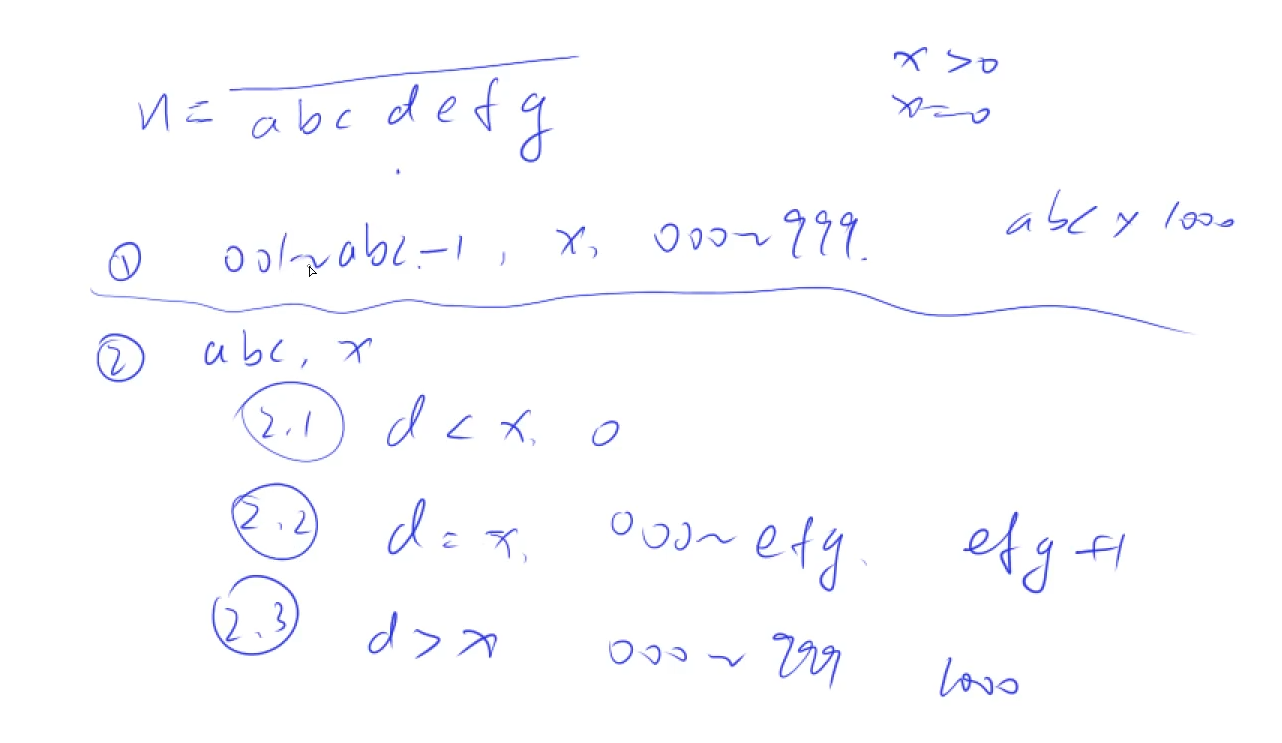 x > 0
n = abc defg
x = 0
① 001~abc-1, x, 000~999. abc × 1000
② abc, x
2.1 d < x, 0
2.2 d = x, 000~efg. efg+1
2.3 d > x 000~999 1000